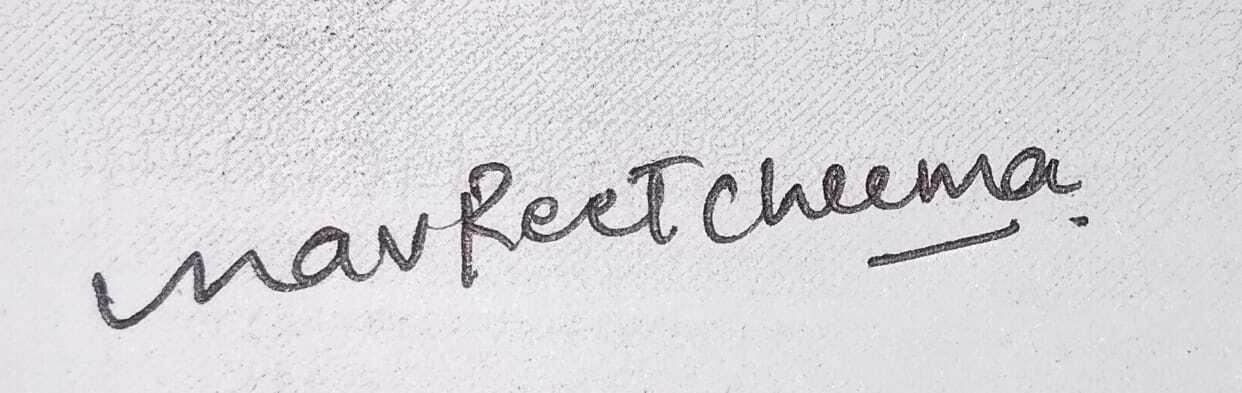 Navpreet Cheema.